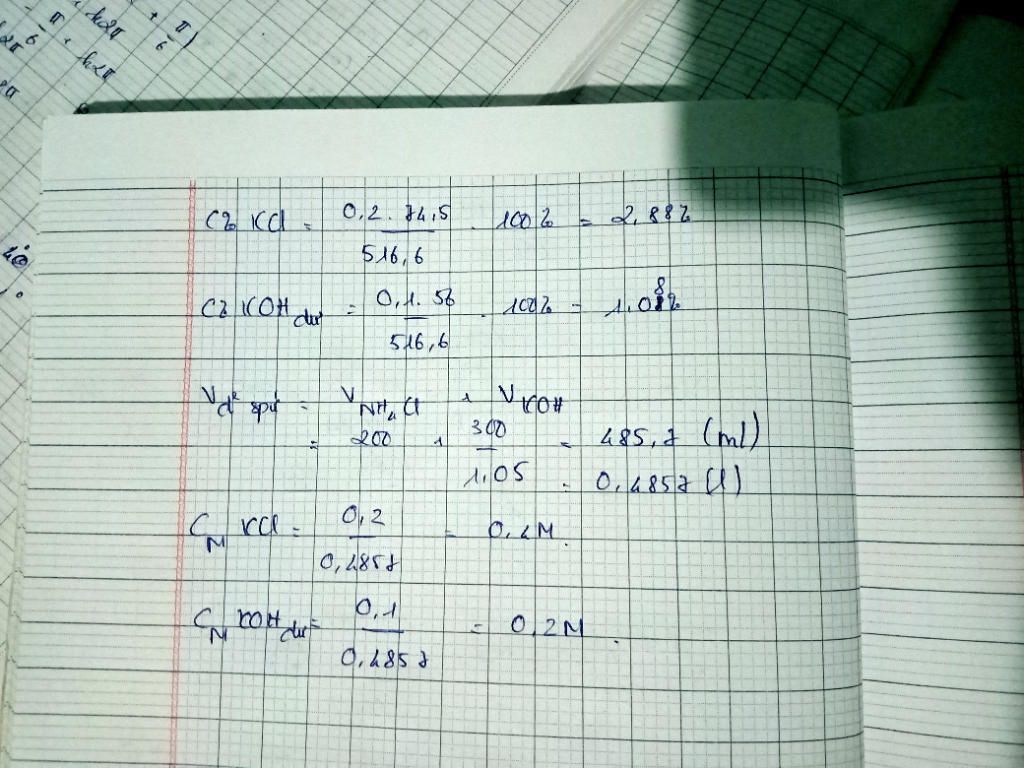 + π/6)
π/6 + k2π
k2π
C% KCl = 0,2 . 74,5 / 516,6 . 100% = 2,88%
C% KOH dư = 0,1 . 56 / 516,6 . 100% = 1,08%
V d² spư = V NH₄Cl + V KOH
= 200 + 300 / 1,05 = 485,7 (ml)
= 0,4857 (l)
C_M KCl = 0,2 / 0,4857 = 0,4M.
C_M KOH dư = 0,1 / 0,4857 = 0,2M.